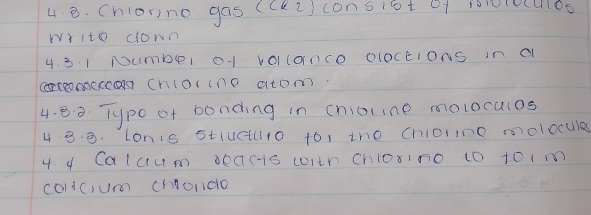 4.3. Chlorine gas (Cl2) consist of molecules
Write down
4.3.1 Number of valance electrons in a
chlorine atom.
4.3.2. Type of bonding in chlorine molecules
4.3.3. Lewis structure for the chlorine molecule
4.4 Calcium reacts with chlorine to form
calcium chloride